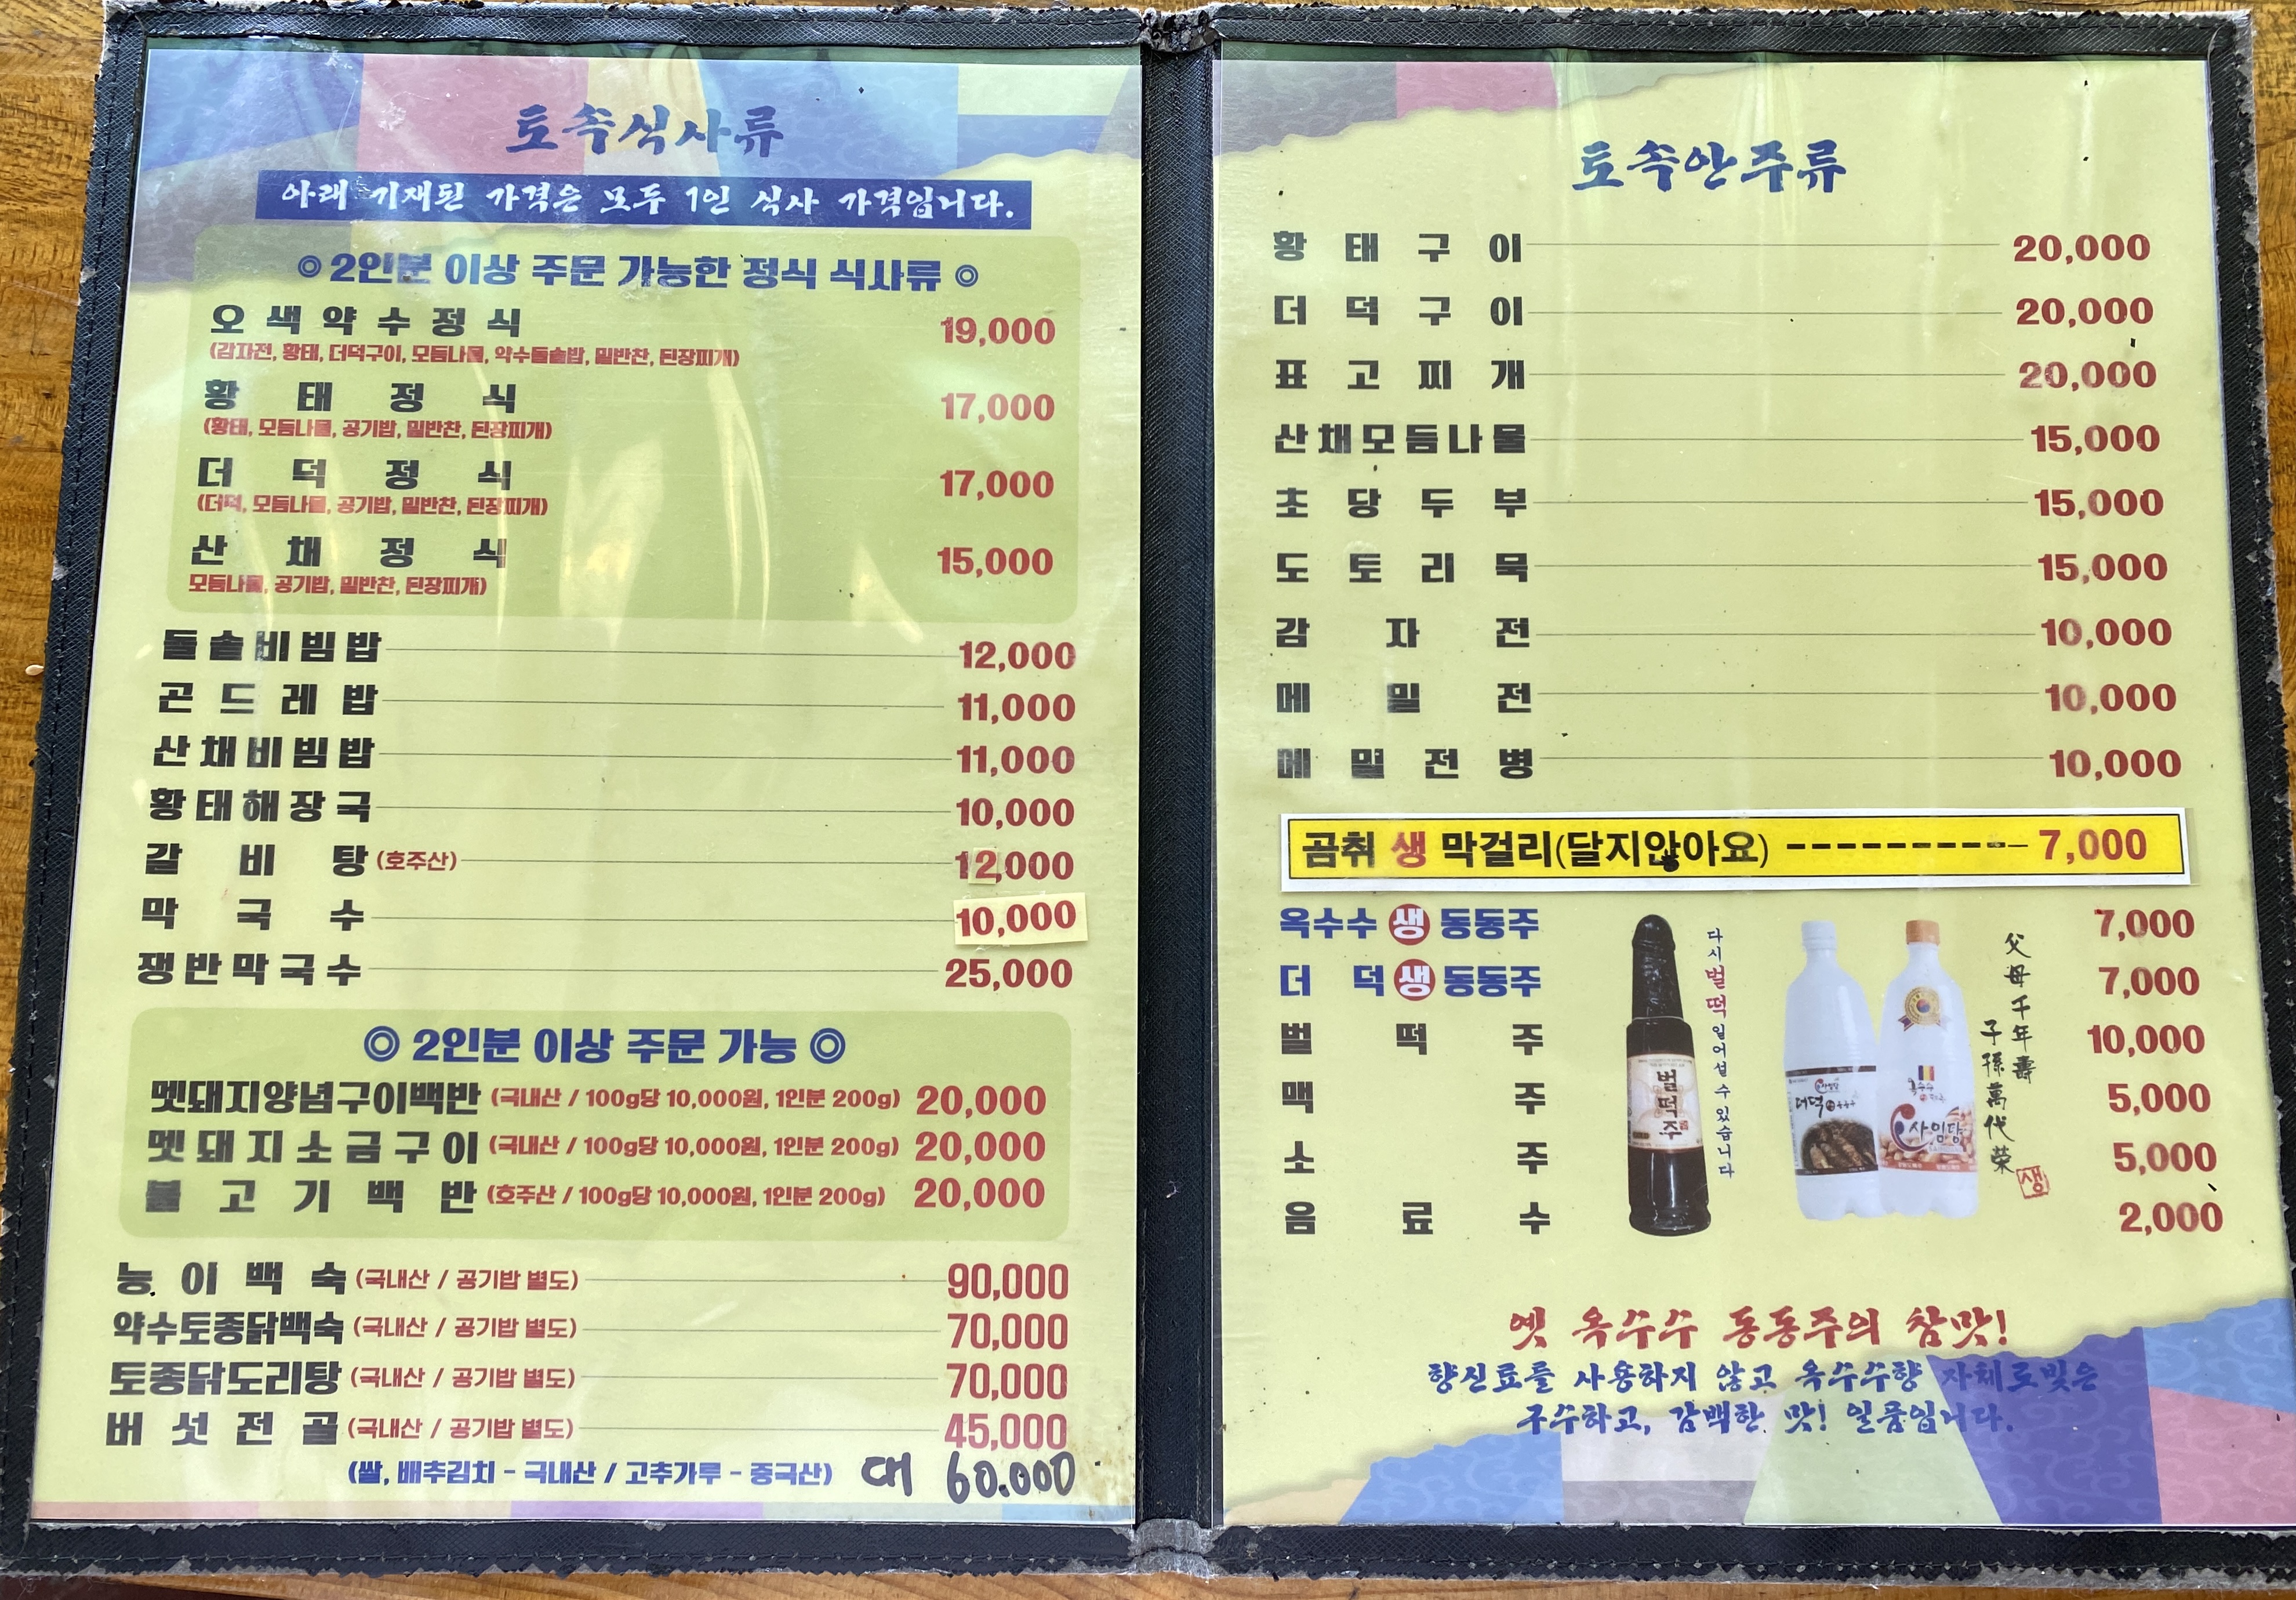 토속식사류
아래 기재된 가격은 모두 1인 식사 가격입니다.
◎ 2인분 이상 주문 가능한 정식 식사류 ◎
오색약수정식 19,000
(감자전, 황태, 더덕구이, 모듬나물, 약수돌솥밥, 밑반찬, 된장찌개)
황태정식 17,000
(황태, 모듬나물, 공기밥, 밑반찬, 된장찌개)
더덕정식 17,000
(더덕, 모듬나물, 공기밥, 밑반찬, 된장찌개)
산채정식 15,000
모듬나물, 공기밥, 밑반찬, 된장찌개)
돌솥비빔밥 12,000
곤드레밥 11,000
산채비빔밥 11,000
황태해장국 10,000
갈비탕 (호주산) 12,000
막국수 10,000
쟁반막국수 25,000
◎ 2인분 이상 주문 가능 ◎
멧돼지양념구이백반 (국내산 / 100g당 10,000원, 1인분 200g) 20,000
멧돼지소금구이 (국내산 / 100g당 10,000원, 1인분 200g) 20,000
불고기백반 (호주산 / 100g당 10,000원, 1인분 200g) 20,000
능이백숙 (국내산 / 공기밥 별도) 90,000
약수토종닭백숙 (국내산 / 공기밥 별도) 70,000
토종닭도리탕 (국내산 / 공기밥 별도) 70,000
버섯전골 (국내산 / 공기밥 별도) 45,000
(쌀, 배추김치 - 국내산 / 고추가루 - 중국산) 대 60.000
토속안주류
황태구이 20,000
더덕구이 20,000
표고찌개 20,000
산채모듬나물 15,000
초당두부 15,000
도토리묵 15,000
감자전 10,000
메밀전 10,000
메밀전병 10,000
곰취 생 막걸리(달지않아요) ----------- 7,000
옥수수 생 동동주 7,000
더덕 생 동동주 7,000
벌떡주 10,000
맥주 5,000
소주 5,000
음료수 2,000
다시 벌떡 일어설 수 있습니다
벌떡주
더덕
옥수수
사임당
父母千年壽
子孫萬代榮
생
옛 옥수수 동동주의 참맛!
향신료를 사용하지 않고 옥수수향 자체로빚은
구수하고, 담백한 맛! 일품입니다.